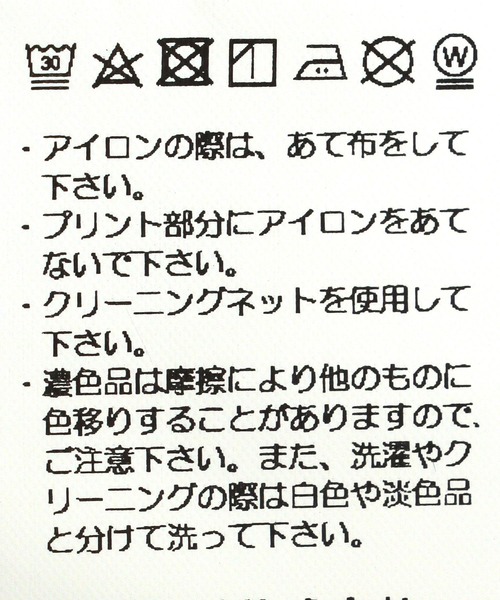 30 W
・アイロンの際は、あて布をして
下さい。
・プリント部分にアイロンをあて
ないで下さい。
・クリーニングネットを使用して
下さい。
・濃色品は摩擦により他のものに
色移りすることがありますので、
ご注意下さい。また、洗濯やク
リーニングの際は白色や淡色品
と分けて洗って下さい。